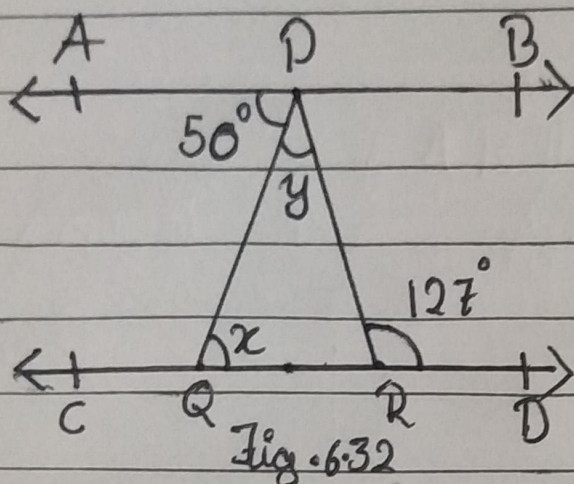 A P B
50°
y
127°
x
C Q R D
Fig. 6.32